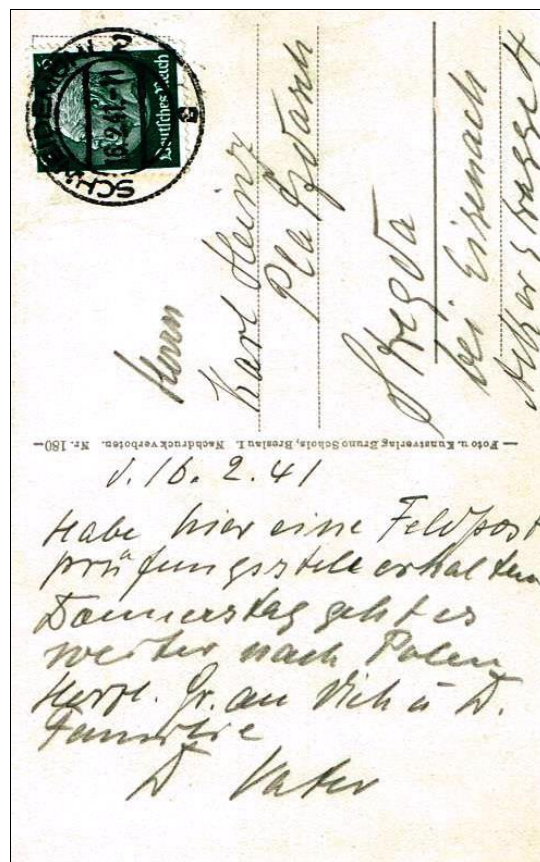 SCHWEIDEMÜHL 2
16.2.41.-11
Deutsches Reich
Herrn
Karl Heinz
Stregda
bei Eisenach
Foto u. Kunstverlag Bruno Scholz, Breslau 1. Nachdruck verboten. Nr. 180
d. 16. 2. 41
Habe hier eine Feldpost
prüfungsstelle erhalten
Donnerstag geht es
weiter nach Polen
Herzl. Gr. an Dich u D.
Familie
D Vater